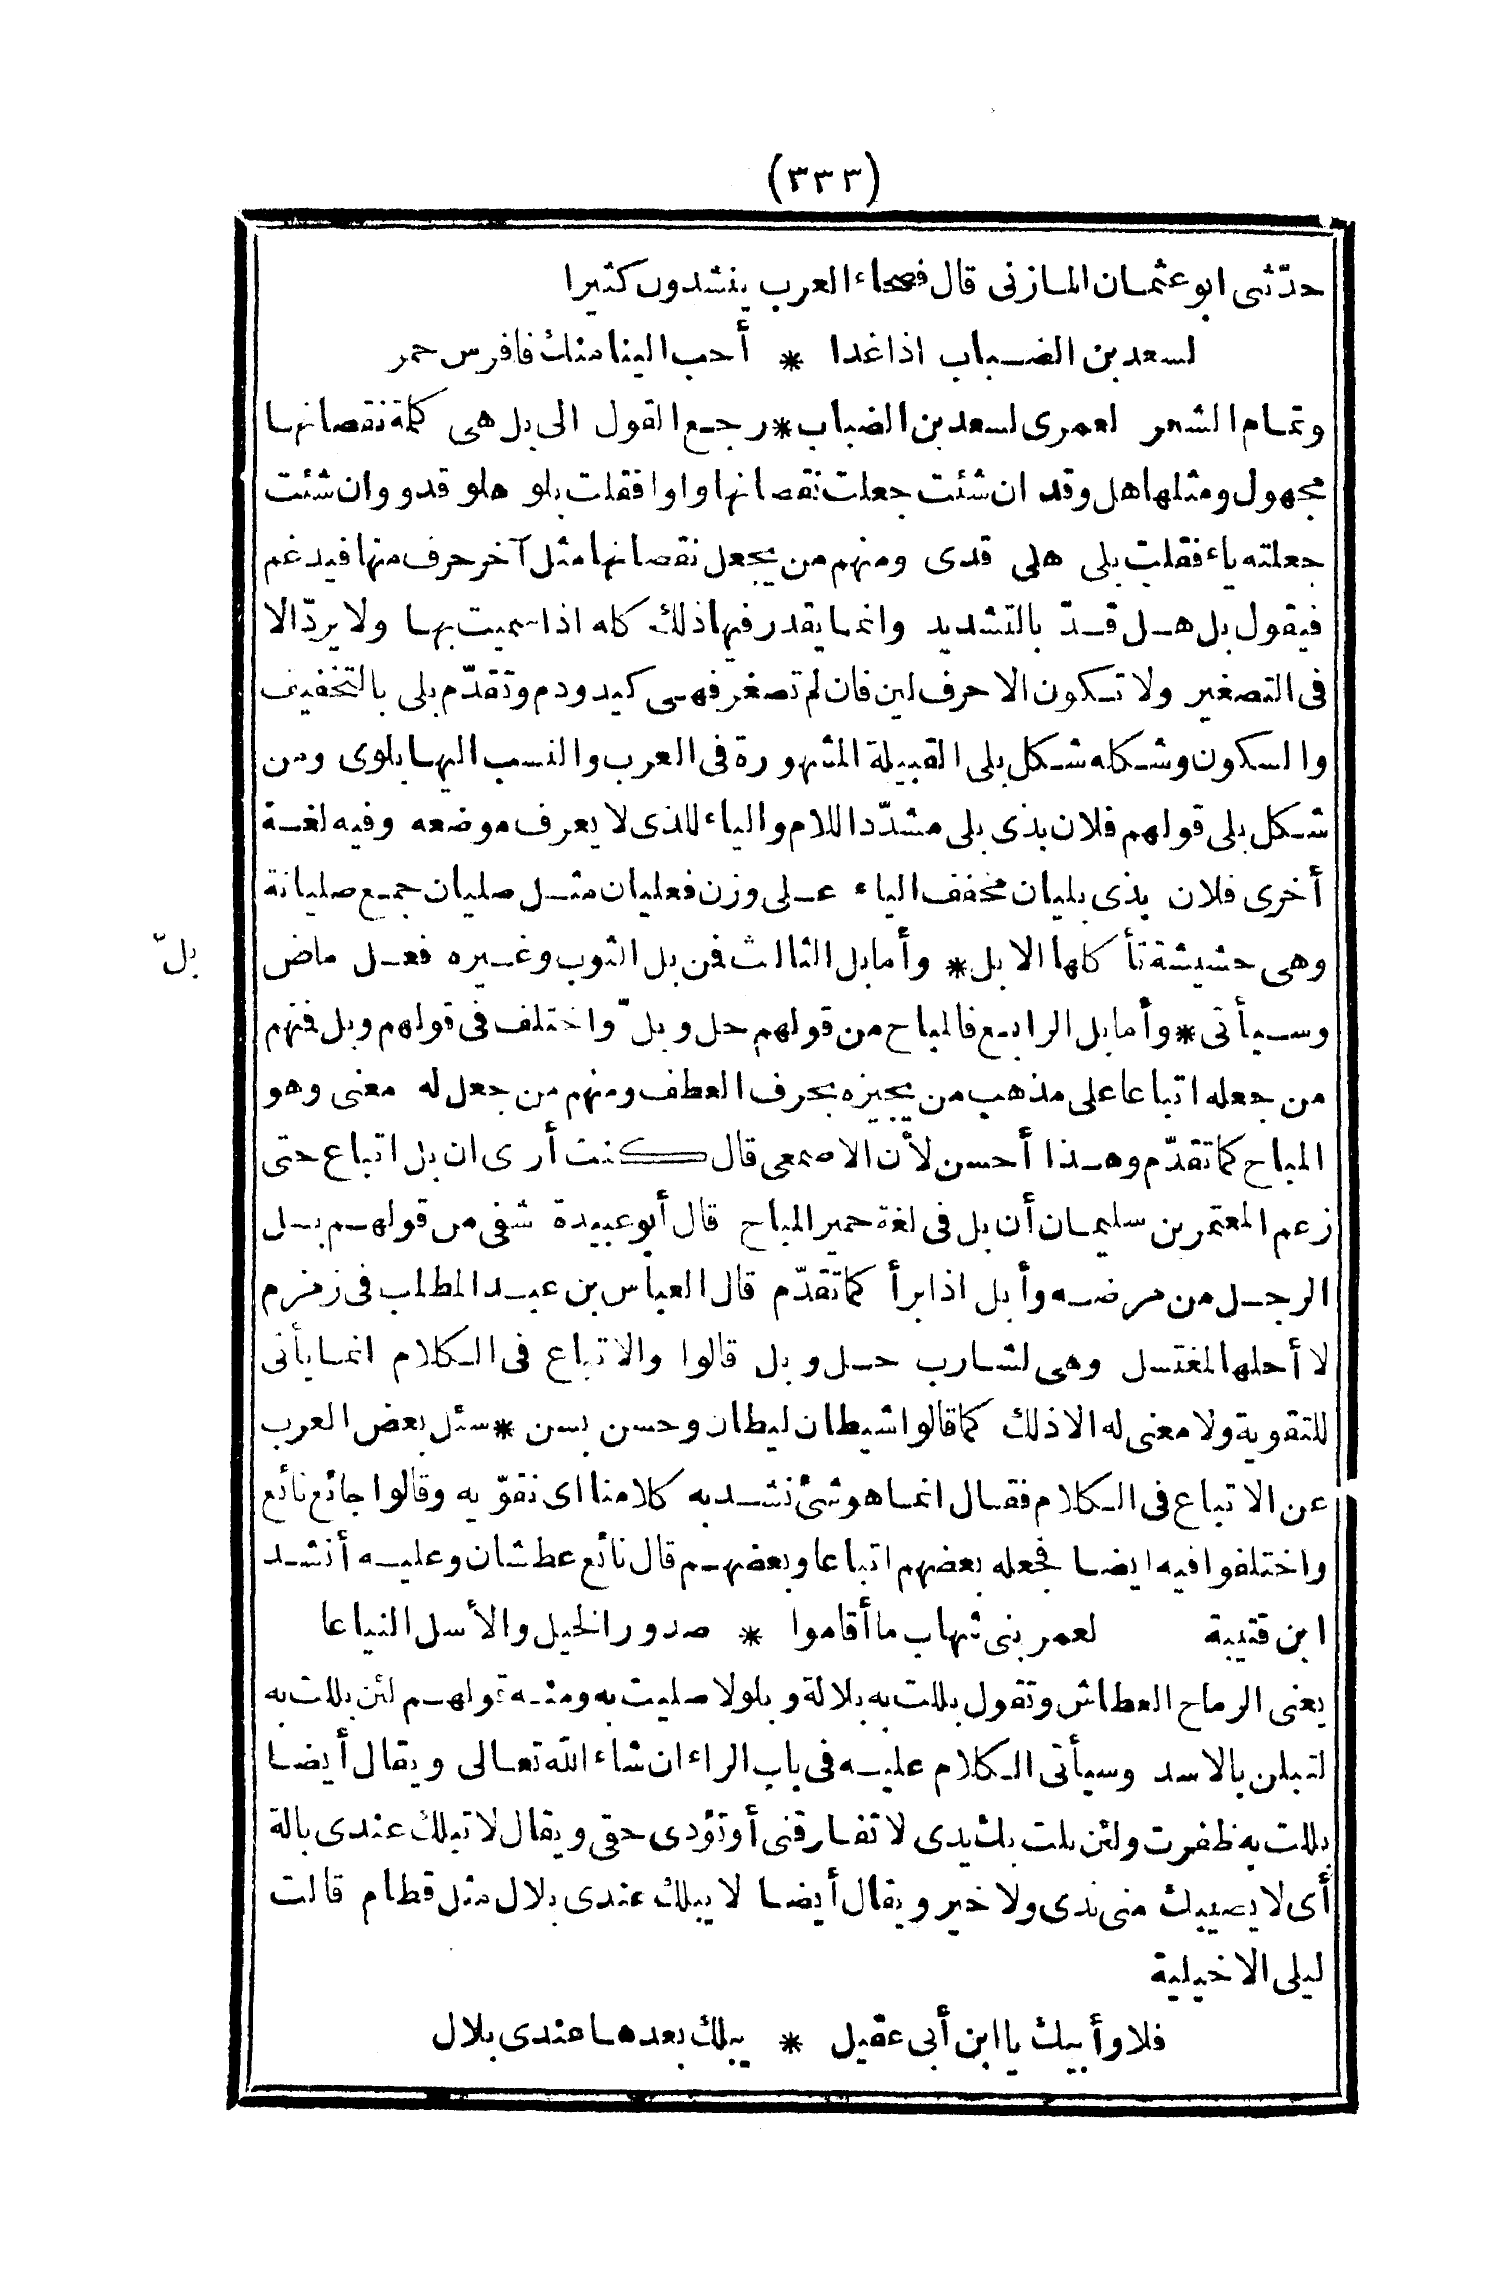 (٣٣٣)
حدّثنى ابو عثمان المازنى قال فصحاء العرب ينشدون كثيرا
لسعد بن الضباب اذا غدا * أحب الينا منك فافرس حمر
وتمام الشعر لعمرى لسعد بن الضباب * رجع القول الى بل هى كلمة نقصانها
مجهول ومثلها هل وقد ان شئت جعلت نقصانها واوا فقلت بلو هلو قدو وان شئت
جعلته ياء فقلت بلى هلى قدى ومنهم من يجعل نقصانها مثل آخر حرف منها فيدغم
فيقول بل هل قدّ بالتشديد وانما يقدر فيها ذلك كله اذا سميت بها ولا يردّ الا
فى التصغير ولا تكون الا حرف لين فان لم تصغر فهى كيد ودم وتقدّم بلى بالتخفيف
والسكون وشكله شكل بلى القبيلة المشهورة فى العرب والنسب اليها بلوى ومن
شكل بلى قولهم فلان بذى بلى مشدّد اللام والياء للذى لا يعرف موضعه وفيه لغة
أخرى فلان بذى بليان مخفف الياء على وزن فعليان مثل صليان جمع صليانة
وهى حشيشة تأكلها الابل * وأما بل الثالث فمن بل الثوب وغيره فعل ماض
بلّ
وسيأتى * وأما بل الرابع فالمباح من قولهم حل وبلّ واختلف فى قولهم وبل فمنهم
من جعله اتباعا على مذهب من يجيزه بحرف العطف ومنهم من جعل له معنى وهو
المباح كما تقدّم وهذا أحسن لأن الاصمعى قال كنت أرى ان بل اتباع حتى
زعم المعتمر بن سليمان أن بل فى لغة حمير المباح قال أبو عبيدة شفى من قولهم بل
الرجل من مرضه وأبل اذا برأ كما تقدّم قال العباس بن عبد المطلب فى زمزم
لا أحلها لمغتسل وهى لشارب حل وبل قالوا والاتباع فى الكلام انما يأتى
للتقوية ولا معنى له الا ذلك كما قالوا شيطان ليطان وحسن بسن * سئل بعض العرب
عن الاتباع فى الكلام فقال انما هو شئ نشد به كلامنا اى نقوّيه وقالوا جائع نائع
واختلفوا فيه ايضا فجعله بعضهم اتباعا وبعضهم قال نائع عطشان وعليه أنشد
ابن قتيبة لعمر بنى شهاب ما أقاموا * صدور الخيل والأسل النياعا
يعنى الرماح العطاش وتقول بللت به بلالة وبلولا صليت به ومنه قولهم لئن بللت به
لتبلن بالاسد وسيأتى الكلام عليه فى باب الراء ان شاء الله تعالى ويقال أيضا
بللت به ظفرت ولئن بلت بك يدى لا تفارقنى أو تؤدى حقى ويقال لا تبلك عندى بالة
أى لا يصيبك منى ندى ولا خير ويقال أيضا لا يبلك عندى بلال مثل قطام قالت
ليلى الاخيلية
فلا وأبيك يا ابن أبى عقيل * يبلك بعدها عندى بلال